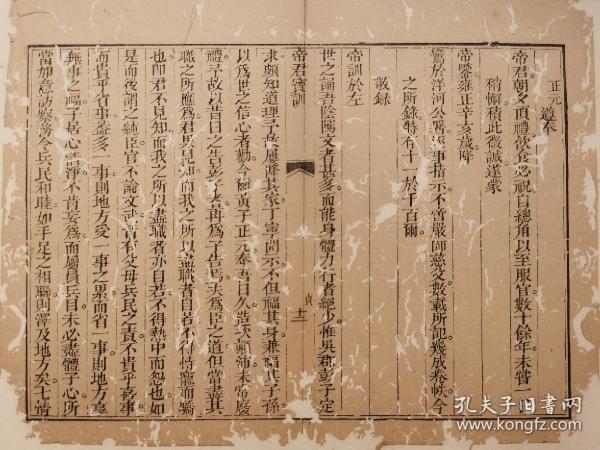 正元遵奉
帝君朝夕頂禮飲食必祝自總角以至服官數十餘年未嘗一
稍懈積此微誠遂蒙
帝鑒雍正辛亥歲降
鸞於洋河公署遇事指示不啻嚴師慈父數載所記幾放卷帙今
之所錄特存十一於千百爾
敬錄
帝訓於左
帝君寶訓
世之誦吾陰隲文者甚多而能身體力行者絕少惟吳郡彭子定
求頗知道理了於屢降其家丁寧開示不但福其身兼福其子孫
以為世之信心者勸今楊黃子正元奉吾日久造次顛沛未常廢
禮子故以昔日之告彭子者再為子告焉夫為臣之道但當盡其
職之所應為君果見知而我之所以盡職者自若不得恃寵而驕
也即君不見知而我之所以盡職者亦自若不得熱中而怨也如
是而後謂之純臣官不論文武皆有父母兵民之責不貴乎喜事
而貴乎省事蓋多一事則地方受一事之累而省一事則地方享
無事之福子居心清淨不肯妄為而屬員兵目未必盡體子心所
當加意訪察務令兵民和睦如手足之相聯則澤及地方矣七情
貞
十三
孔夫子旧書网
www.kongfz.com